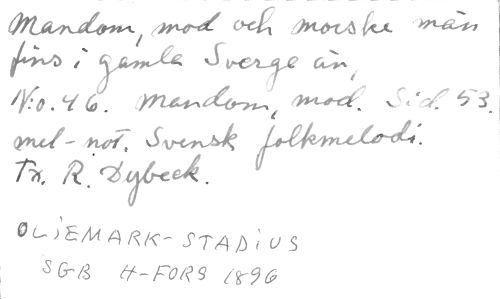 Mandom, mod och morske män
fins i gamla Sverge än,
N:o. 46. Mandom, mod. Sid. 53.
mel-not. Svensk folkmelodi.
Tx. R. Dybeck.
OLiEMARK-STADiUS
SGB H-FORS 1896